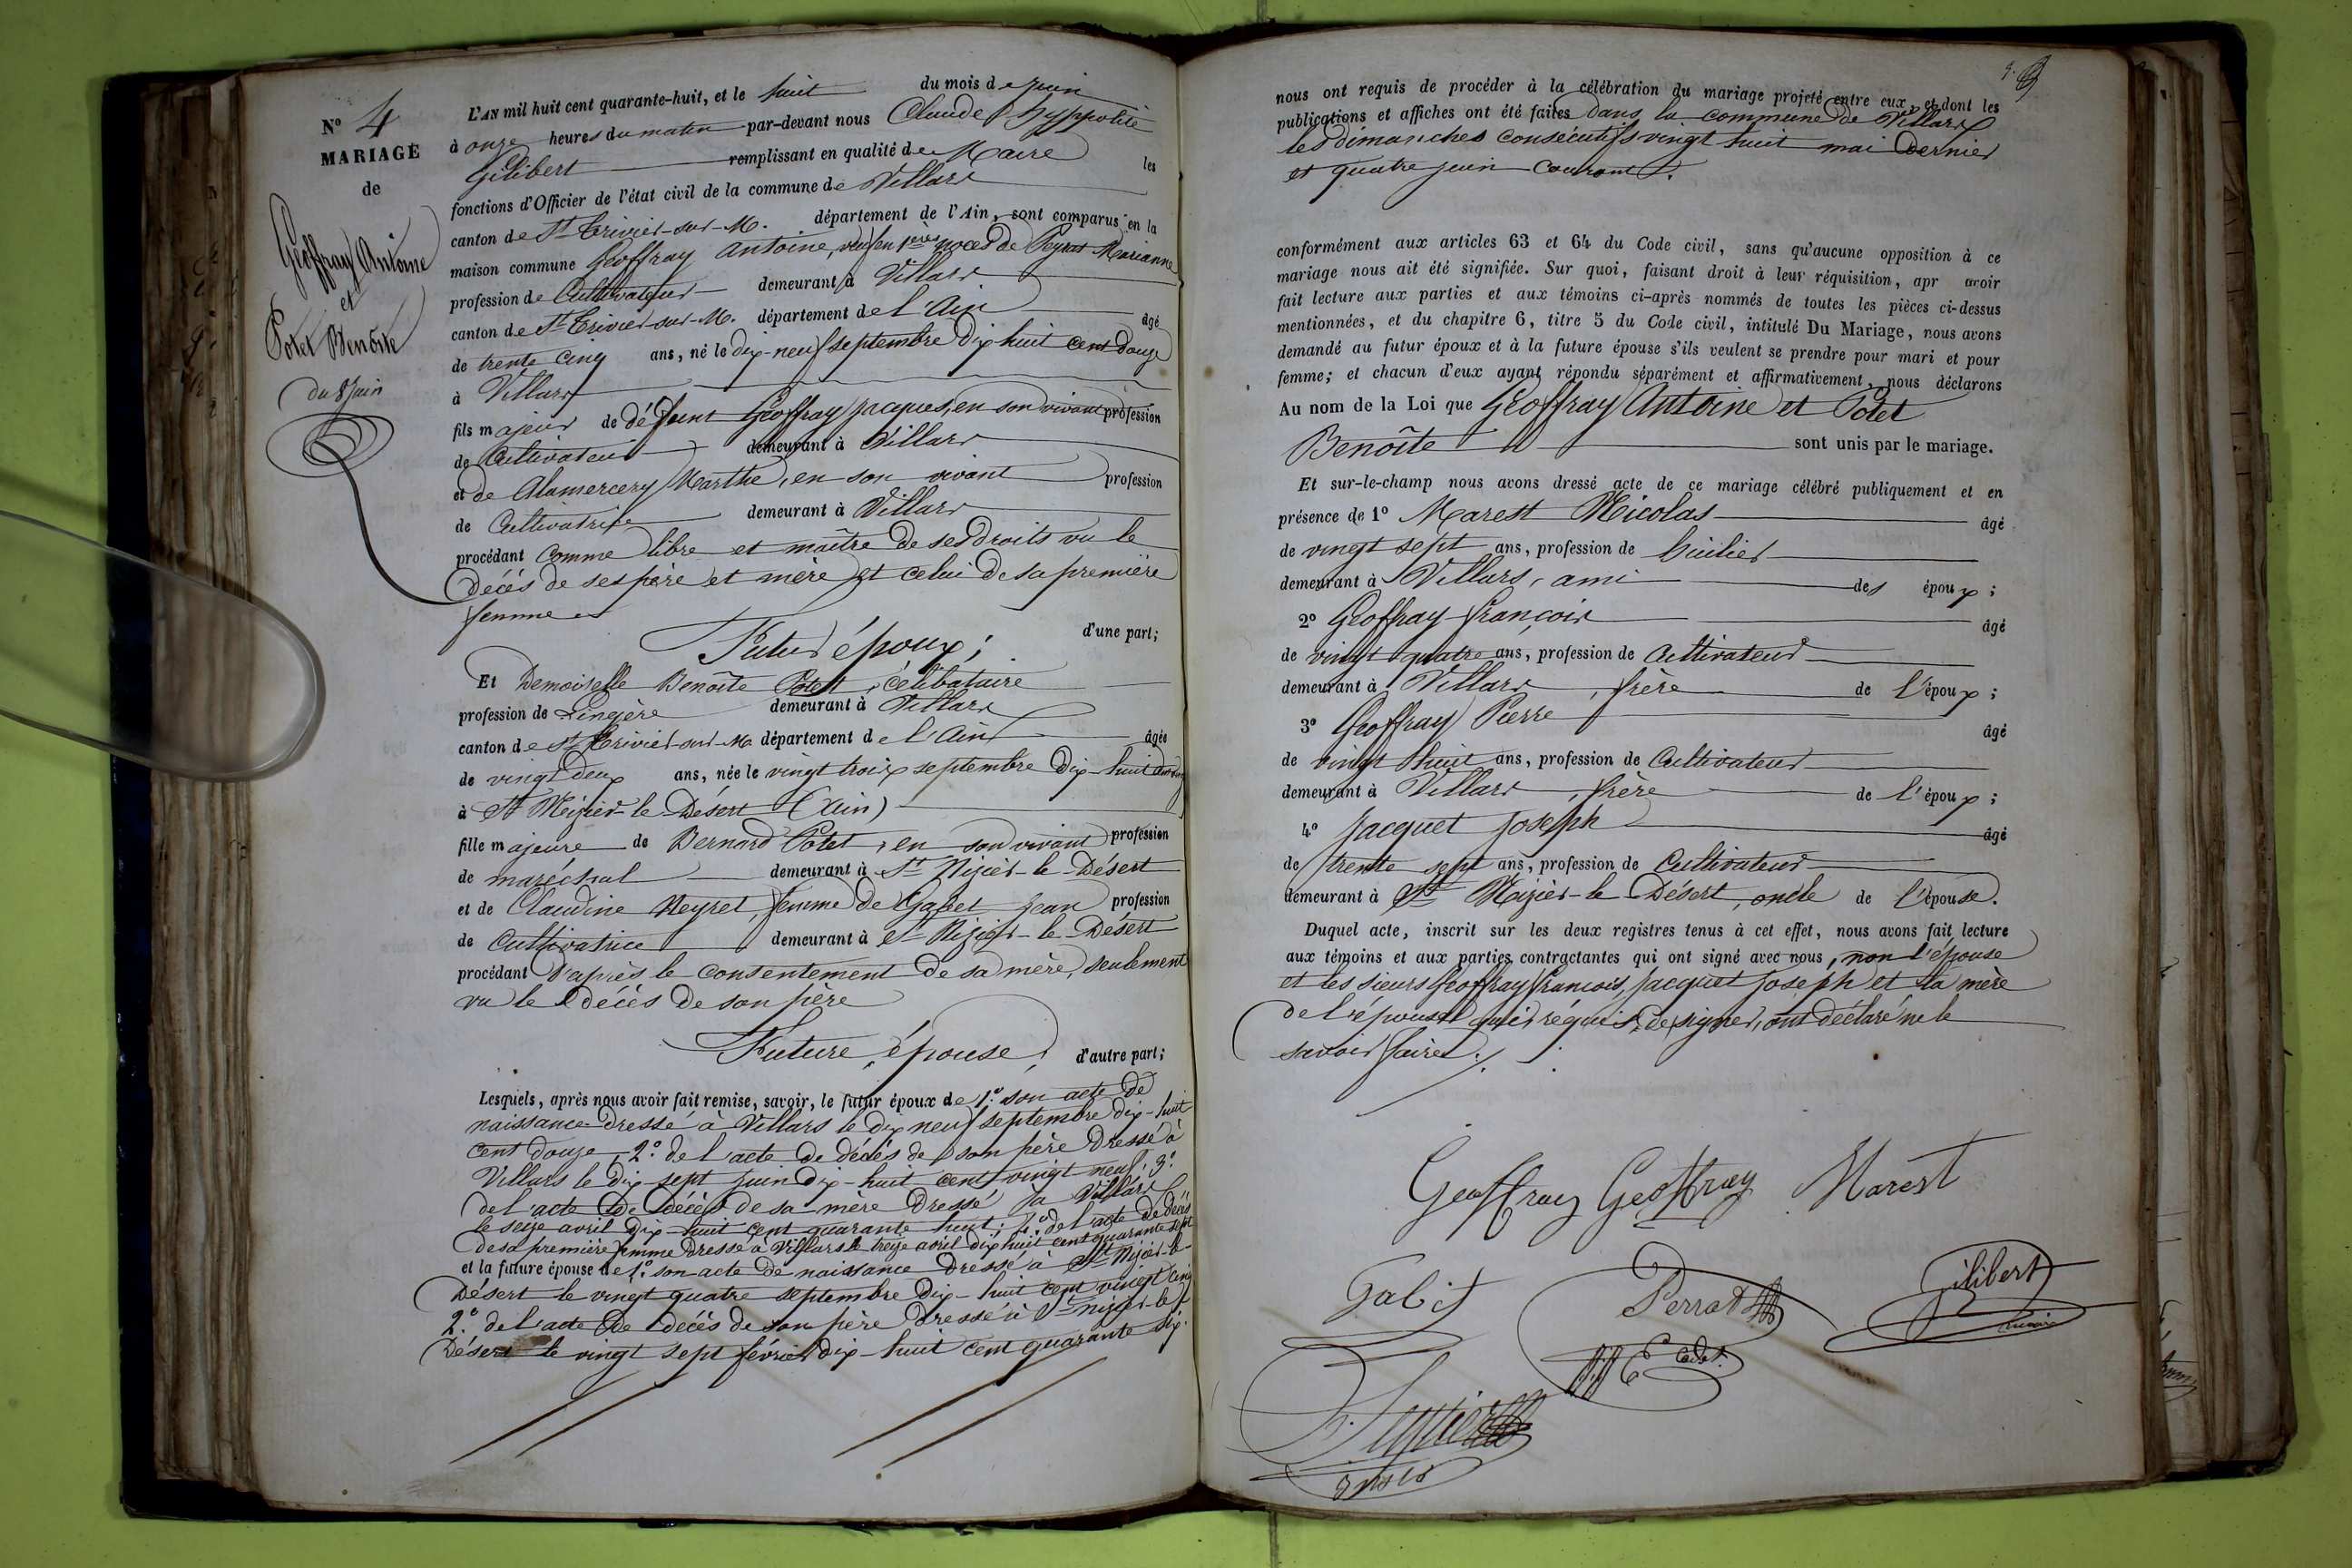 N° 4
MARIAGE
de
Geoffray Antoine
et
Potet Benoîte
du 8 Juin
L'AN mil huit cent quarante-huit, et le huit du mois de juin
à onze heures du matin par-devant nous Claude hyppolite
Gilibert remplissant en qualité de Maire les
fonctions d'Officier de l'état civil de la commune de Villars
canton de St Trivier-sur-M. département de l'Ain, sont comparus en la
maison commune Geoffray Antoine, veuf en 1ères noces de Marianne
profession de Cultivateur demeurant à Villars
canton de St Trivier-sur-M. département de l'Ain âgé
de trente cinq ans, né le dix-neuf septembre dix huit cent douze
à Villars
fils majeur de défunt Geoffray Jacques, en son vivant profession
de Cultivateur demeurant à Villars
et de Alamercery Marthe, en son vivant profession
de Cultivatrice demeurant à Villars
procédant comme libre et maître de ses droits vu le
décès de ses père et mère et celui de sa première
femme
Futur époux; d'une part;
Et Demoiselle Benoîte Potet, célibataire
profession de Lingère demeurant à Villars
canton de St Trivier-sur-M. département de l'Ain âgée
de vingt deux ans, née le vingt trois septembre dix-huit
à St Nizier-le-Désert (Ain)
fille majeure de Bernard Potet, en son vivant profession
de maréchal demeurant à St Nizier-le-Désert
et de Claudine Neyret, femme de Gabet Jean profession
de Cultivatrice demeurant à St Nizier-le-Désert
procédant d'après le consentement de sa mère, seulement
vu le décès de son père
Future épouse, d'autre part;
Lesquels, après nous avoir fait remise, savoir, le futur époux de 1° son acte de
naissance dressé à Villars le dix neuf septembre dix-huit
cent douze, 2° de l'acte de décès de son père dressé à
Villars le dix sept juin dix-huit cent vingt neuf; 3°
de l'acte de décès de sa mère dressé à Villars
le seize avril dix-huit cent quarante huit; 4° de l'acte de décès
de sa première femme dressé à Villars le treize avril dix huit cent quarante sept
et la future épouse de 1° son acte de naissance dressé à St Nizier-le-
Désert le vingt quatre septembre dix-huit cent vingt cinq
2° de l'acte de décès de son père dressé à St nizier-le
Désert le vingt sept février dix-huit cent quarante six.
nous ont requis de procéder à la célébration du mariage projeté entre eux, et dont les
publications et affiches ont été faites dans la commune de Villars
les dimanches consécutifs vingt huit mai dernier
et quatre juin courant.
conformément aux articles 63 et 64 du Code civil, sans qu'aucune opposition à ce
mariage nous ait été signifiée. Sur quoi, faisant droit à leur réquisition, apr avoir
fait lecture aux parties et aux témoins ci-après nommés de toutes les pièces ci-dessus
mentionnées, et du chapitre 6, titre 5 du Code civil, intitulé Du Mariage, nous avons
demandé au futur époux et à la future épouse s'ils veulent se prendre pour mari et pour
femme; et chacun d'eux ayant répondu séparément et affirmativement, nous déclarons
Au nom de la Loi que Geoffray Antoine et Potet
Benoîte sont unis par le mariage.
Et sur-le-champ nous avons dressé acte de ce mariage célébré publiquement et en
présence de 1° Marest Nicolas âgé
de vingt sept ans, profession de huilier
demeurant à Villars, ami des époux;
2° Geoffray françois âgé
de vingt quatre ans, profession de Cultivateur
demeurant à Villars, frère de l'époux;
3° Geoffray Pierre âgé
de vingt huit ans, profession de Cultivateur
demeurant à Villars, frère de l'époux;
4° Jacquet Joseph âgé
de trente sept ans, profession de Cultivateur
demeurant à St Nizier-le-Désert, oncle de l'épouse.
Duquel acte, inscrit sur les deux registres tenus à cet effet, nous avons fait lecture
aux témoins et aux parties contractantes qui ont signé avec nous, non l'épouse
et les sieurs Geoffray françois, Jacquet Joseph et la mère
de l'épouse qui, réquis de signer, ont déclaré ne le
savoir faire.
Geoffray Geoffray Marest
Gabet Perrat Gilibert
Cadet maire